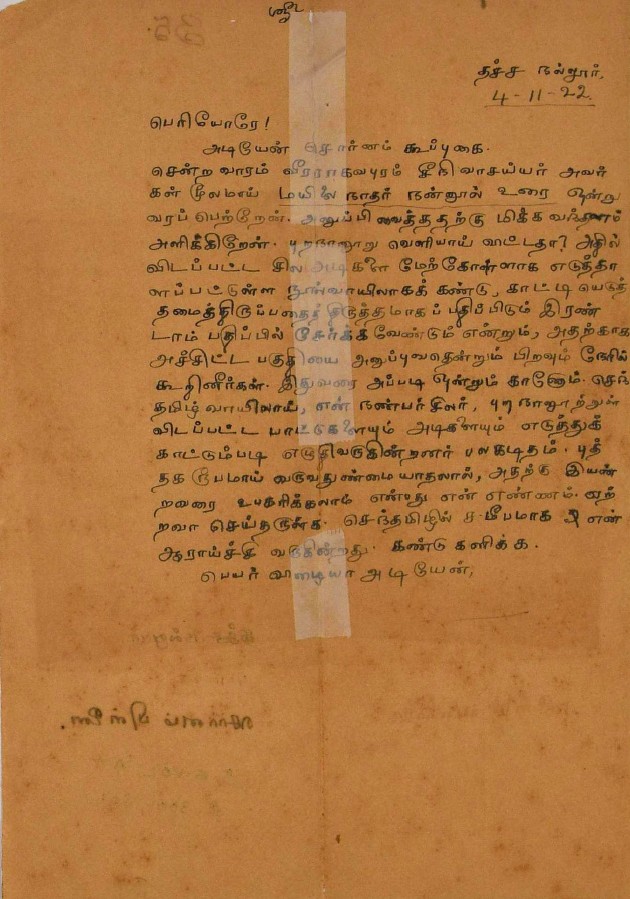 35.
தச்ச நல்லூர்,
4-11-22.
பெரியோரே!
அடியேன் சொர்னம் கூப்புகை.
சென்ற வாரம் வீரராகவபுரம் சீநிவாசய்யர் அவர்
கள் மூலமாய் மயிலைநாதர் நன்னூல் உரை ஒன்று
வரப் பெற்றேன். அனுப்பி வைத்ததற்கு மிக்க வந்தனம்
அளிக்கிறேன். புறநானூறு வெளியாய் விட்டதா? அதில்
விடப்பட்ட சில அடிகளை மேற்கோளாக எடுத்தா
ளப்பட்டுள்ள நூல்வாயிலாகக் கண்டு, காட்டி யெடுத்
தமைத்திருப்பதைத் திருத்தமாகப் பதிப்பிடும் இரண்
டாம் பதிப்பில் சேர்க்கவேண்டும் என்றும், அதற்காக
அச்சிட்ட பகுதியை அனுப்புவதென்றும் பிறவும் நேரில்
கூறினீர்கள். இதுவரை அப்படி ஒன்றும் காணேம். செந்
தமிழ் வாயிலாய், என் நண்பர் சிலர், புறநானூற்றுள்
விடப்பட்ட பாட்டுகளையும் அடிகளையும் எடுத்துக்
காட்டும்படி எழுதிவருகின்றனர் பலகடிதம். புத்
தகரூபமாய் வருவதுண்மையாதலால், அதற்கு இயன்
றவரை உபகரிக்கலாம் என்பது என் எண்ணம். ஏற்
றவா செய்தருள்க. செந்தமிழில் சமீபமாக என்
ஆராய்ச்சி வருகின்றது. கண்டு களிக்க.
பெயர் விழையா அடியேன்,
சொர்னம் பிள்ளை.